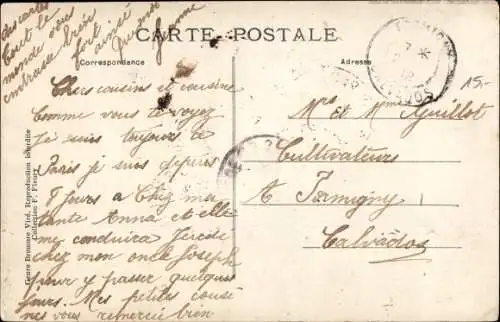 CARTE POSTALE
Correspondance
Adresse
Chers cousins et cousine
comme vous le voyez
Je suis toujours à
Paris je suis depuis
8 jours a chez ma
tante Anna et elle
me conduira Jeudi
chez mon oncle Joseph
pour y passer quelques
jours. Mes petits cousi
nes vous remercie bien
des cartes
tout le
monde vous
embrasse bien
fort
ainsi
que moi
Jeanne
Mrs et Mme Aguillot
Cultivateurs
A Formigny
Calvados
CALVADOS
15.-
Genre Bromure Vind. Reproduction interdite
Collection F. Fleury